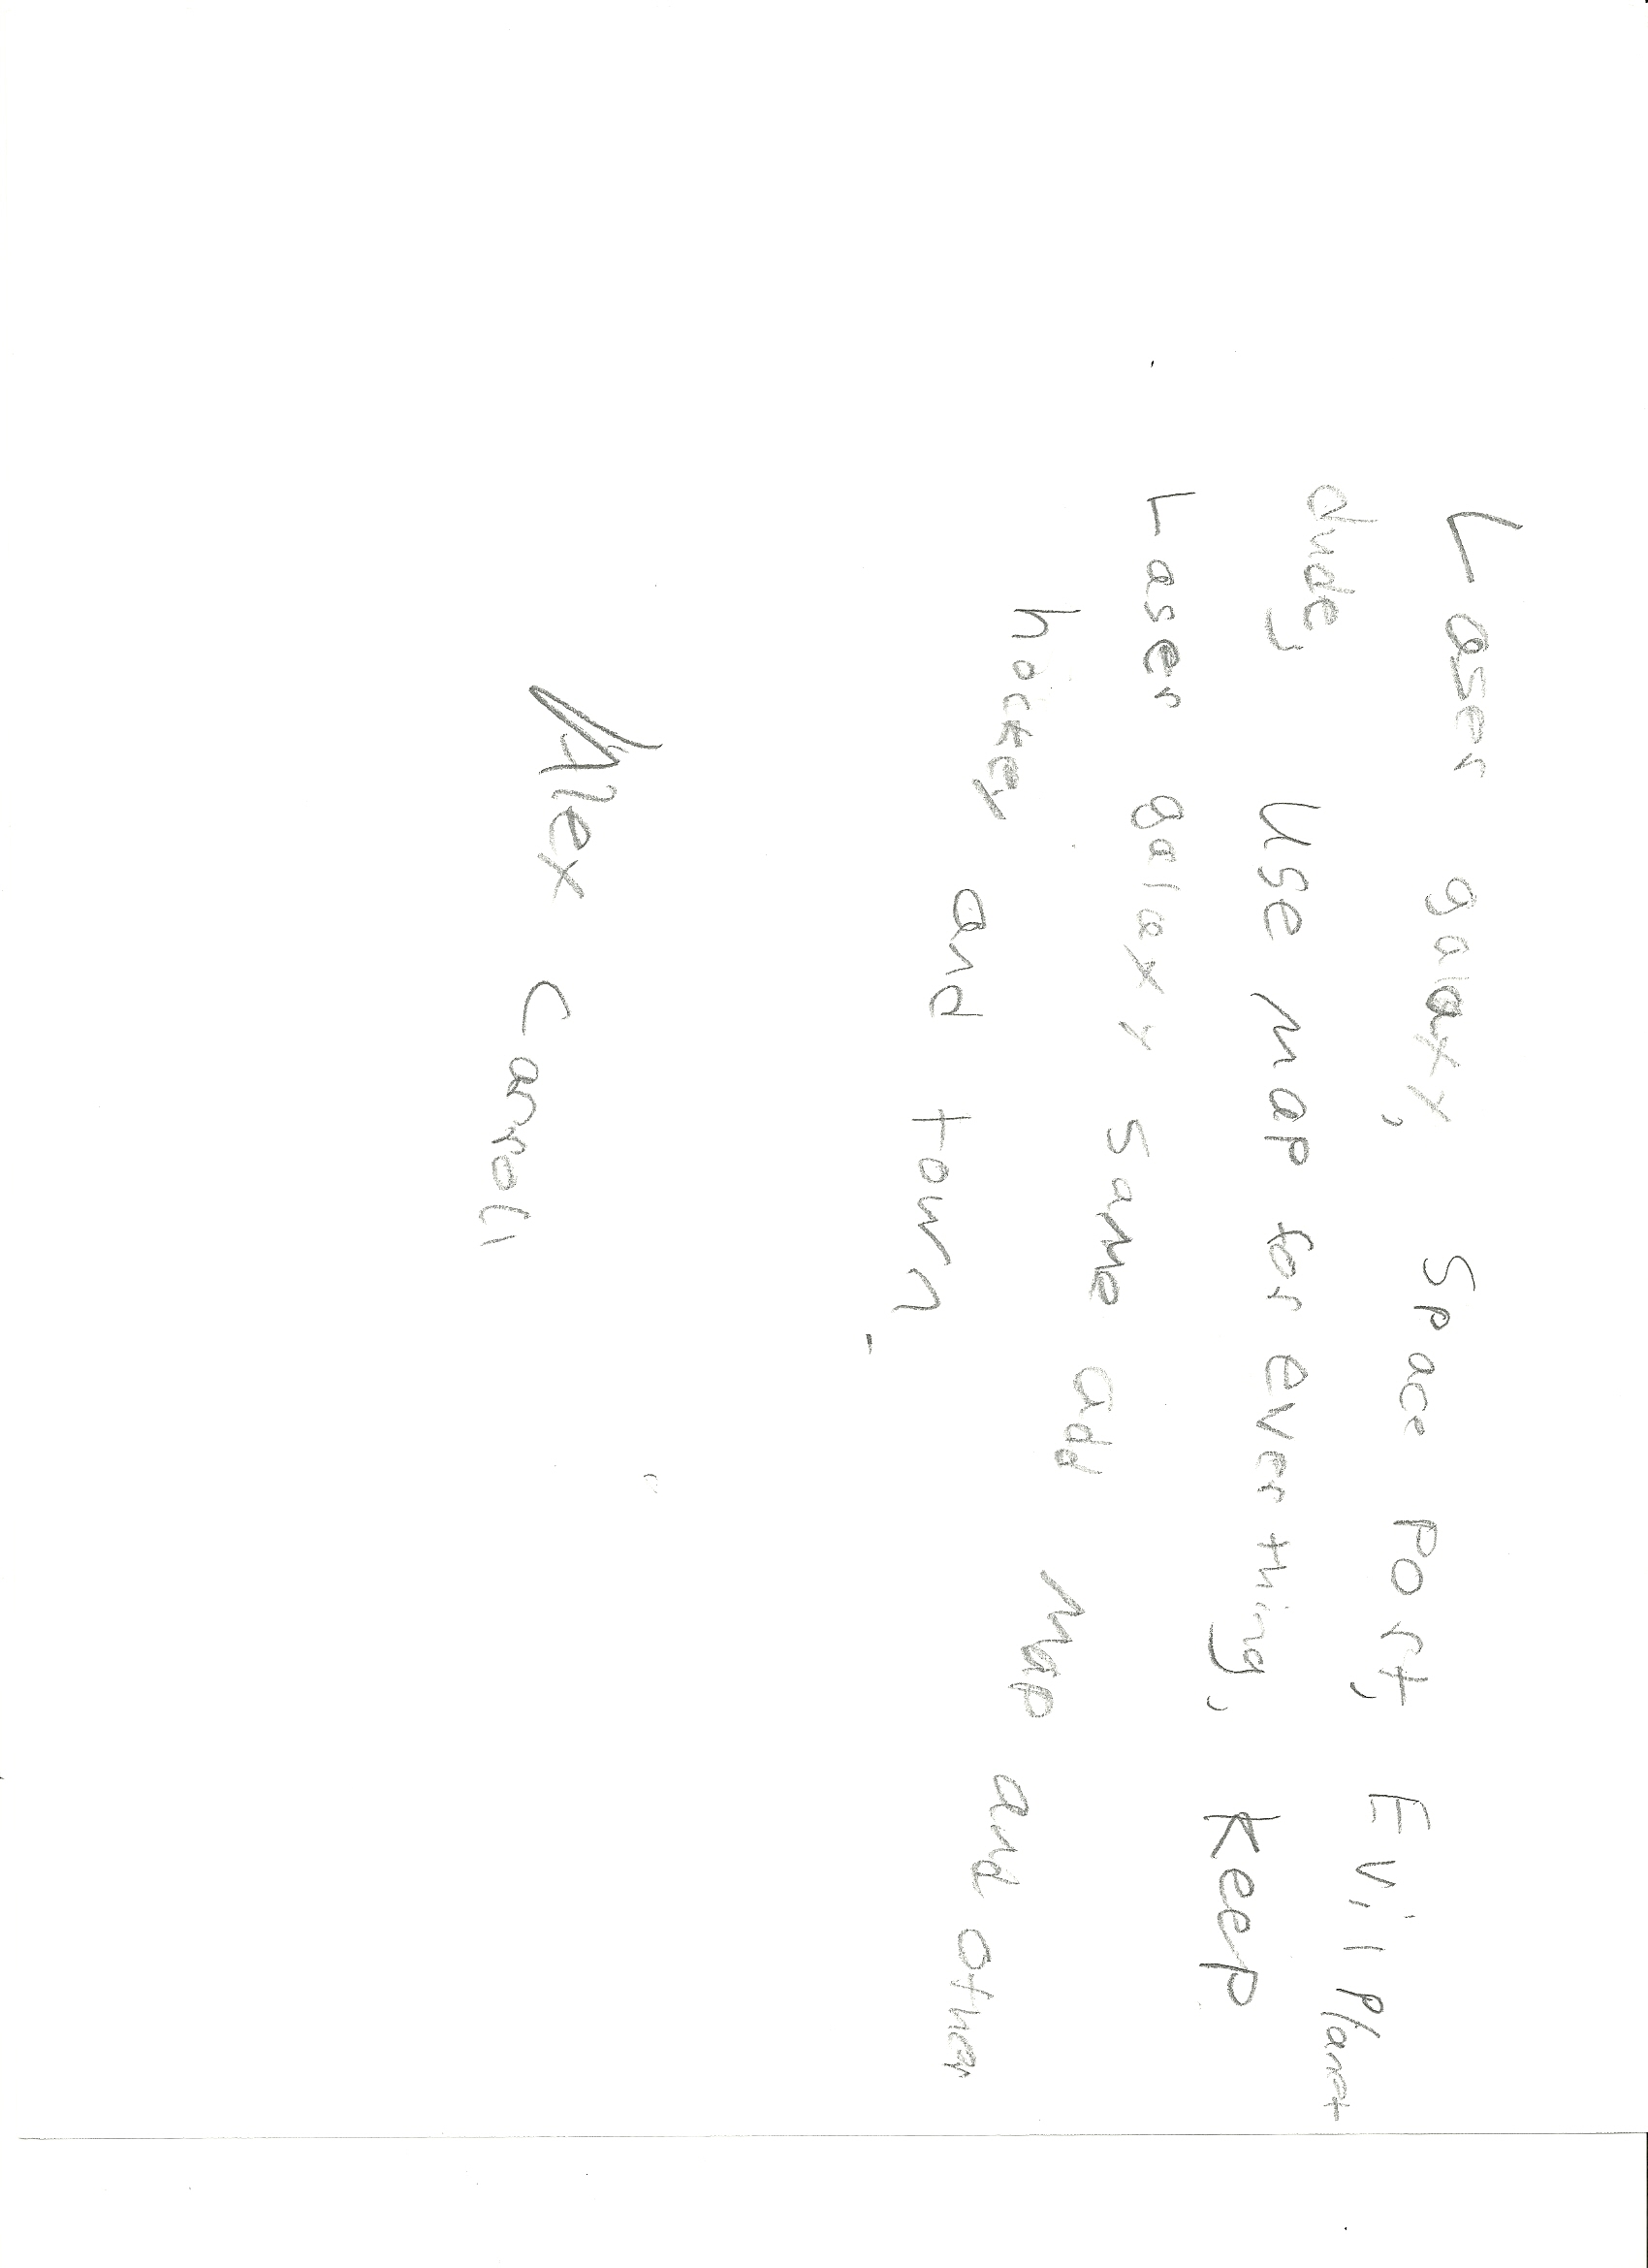 Laser galaxy, Space Port, Evil Planet
dude, Use map for everthing, Keep
Laser galaxy same add map and other
hockey and town.
Alex Carroll